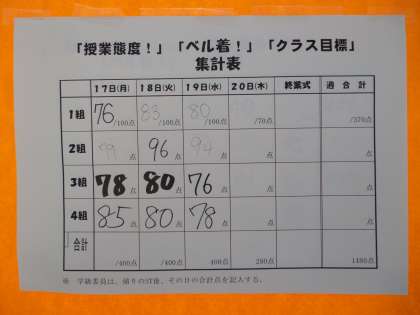 「授業態度！」「ベル着！」「クラス目標」
集計表
17日(月) 18日(火) 19日(水) 20日(木) 終業式 週合計
1組 76/100点 83/100点 80/100点 /70点 /370点
2組 99点 96点 94点 点 点
3組 78点 80点 76点 点 点
4組 85点 80点 78点 点 点
合計 /400点 /400点 400点 280点 1480点
※ 学級委員は、帰りのST後、その日の合計点を記入する。